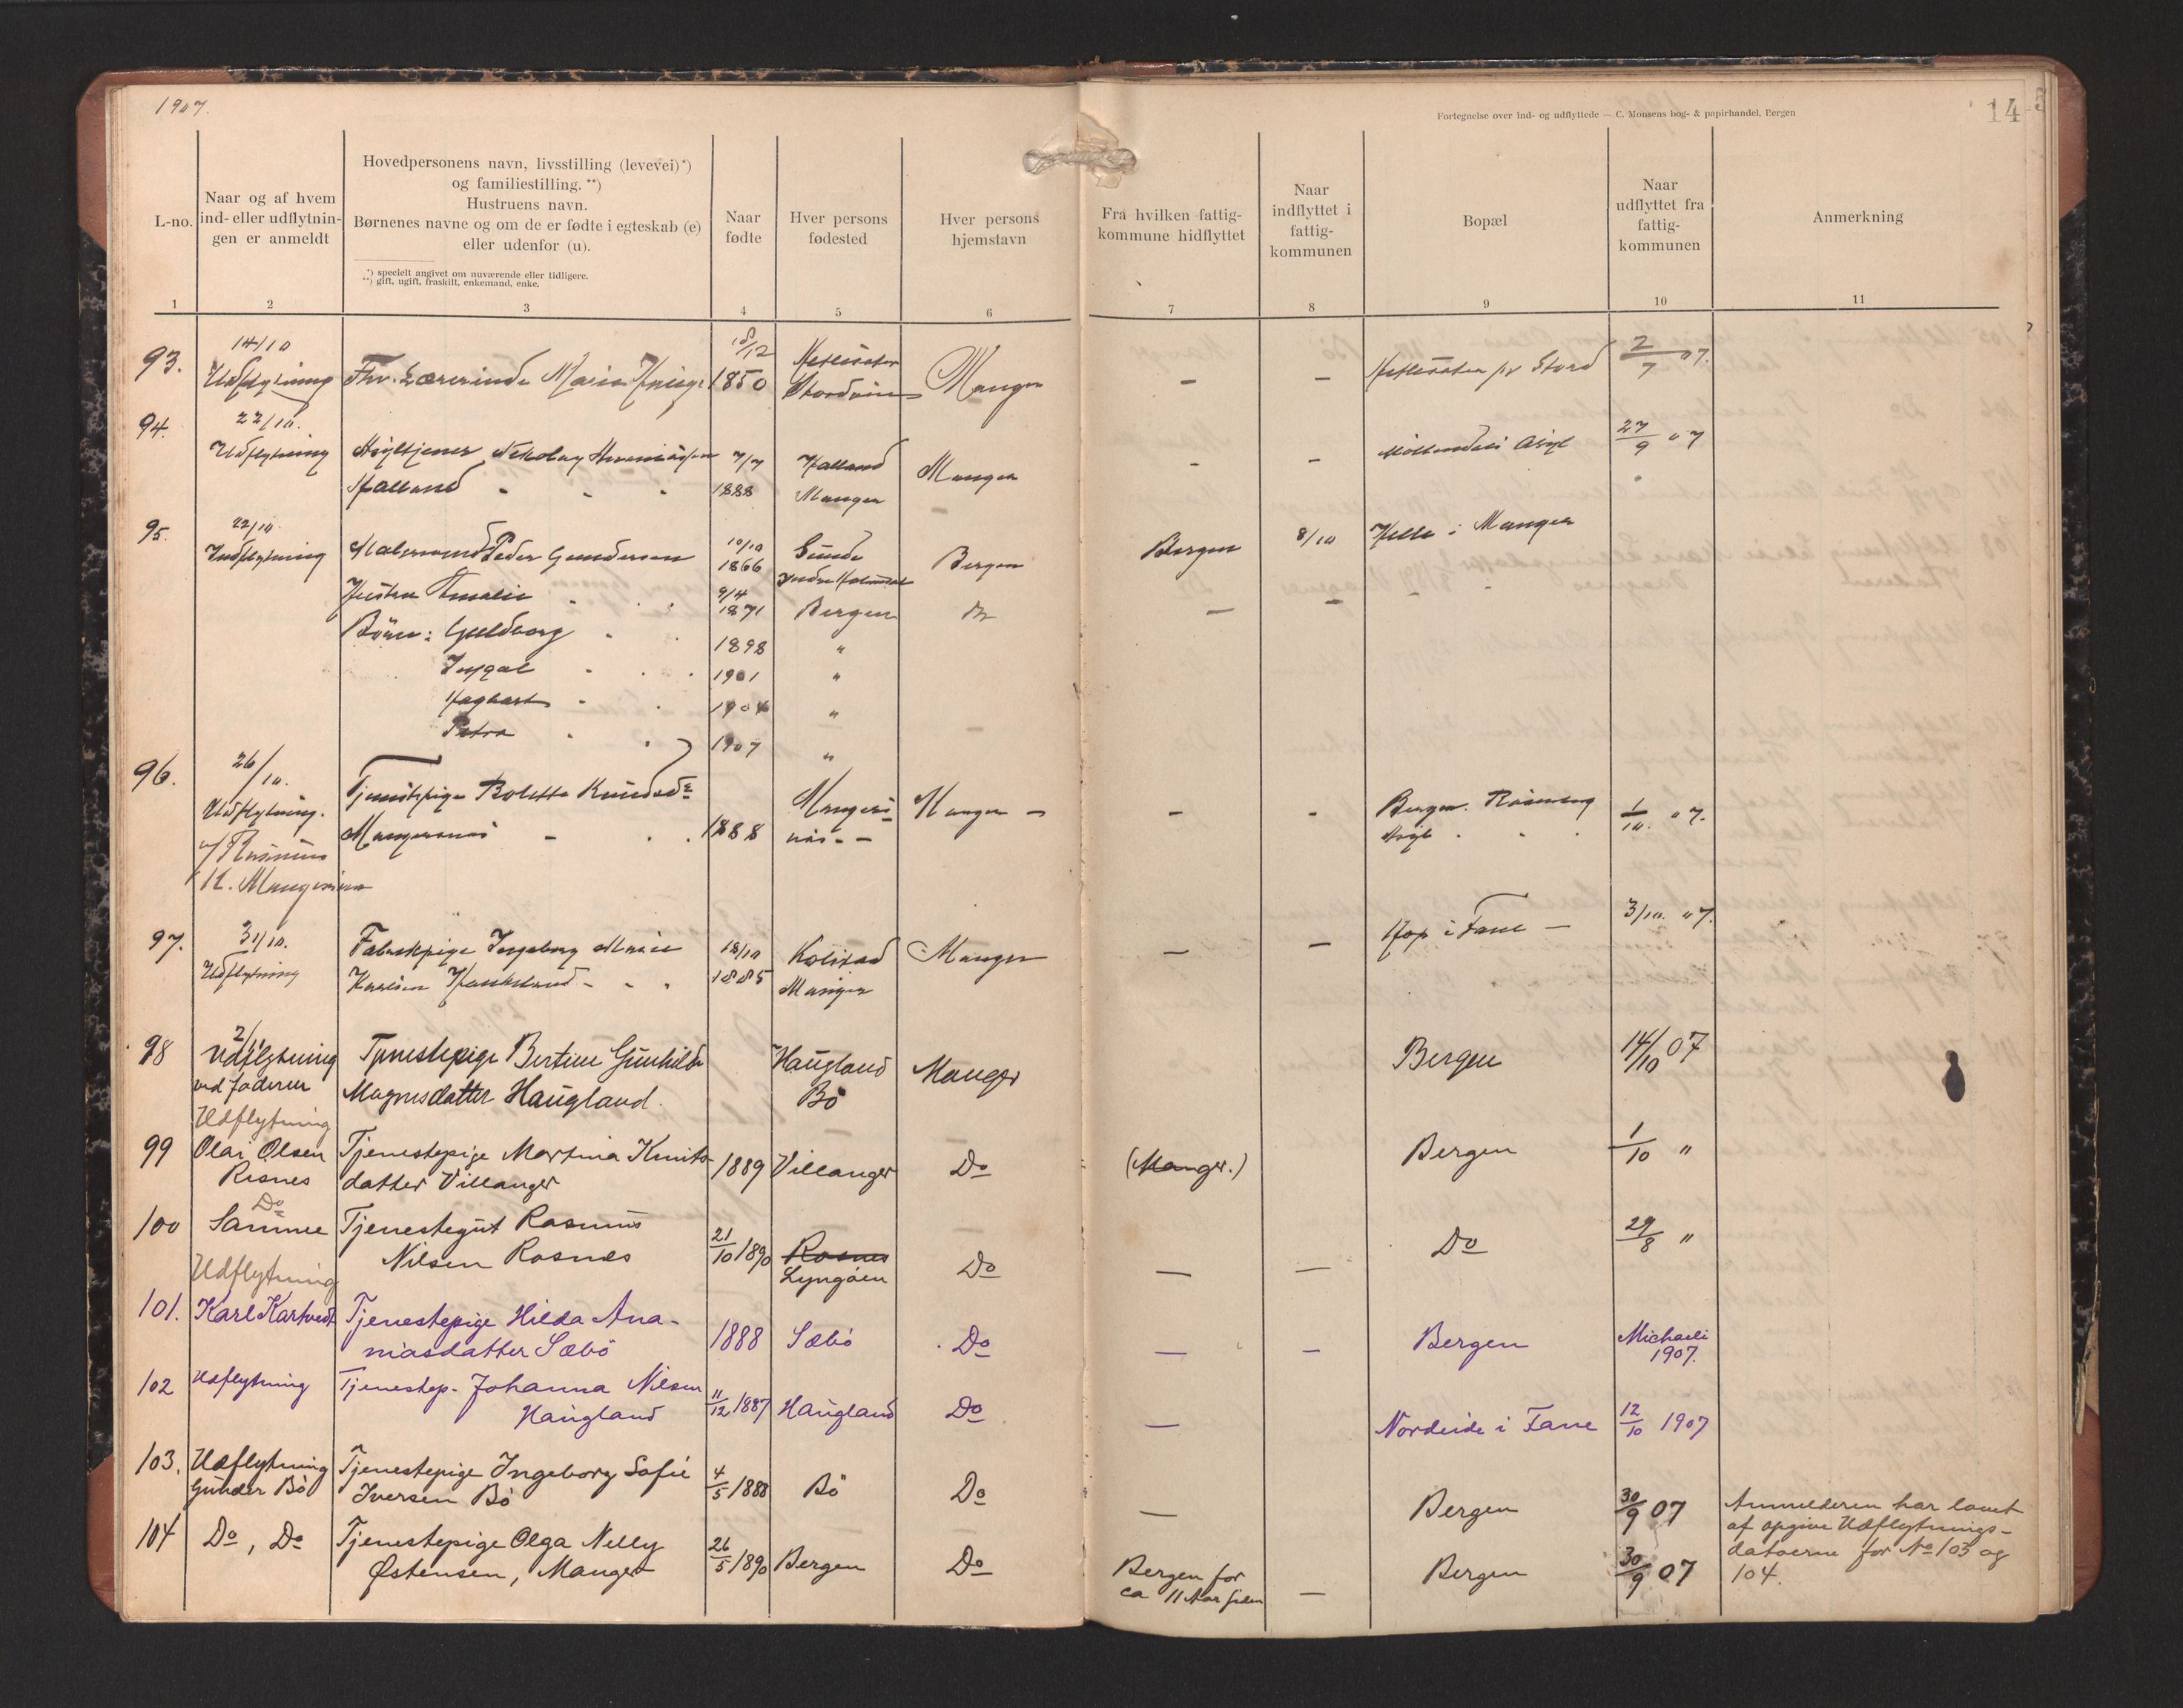 1907.
Fortegnelse over ind- og udflyttede — C. Monsens bog- & papirhandel, Bergen
14
L-no.
Naar og af hvem
ind- eller udflytnin-
gen er anmeldt
Hovedpersonens navn, livsstilling (levevei)*)
og familiestilling. **)
Hustruens navn.
Børnenes navne og om de er fødte i egteskab (e)
eller udenfor (u).
*) specielt angivet om nuværende eller tidligere.
**) gift, ugift, fraskilt, enkemand, enke.
Naar
fødte
Hver persons
fødested
Hver persons
hjemstavn
Fra hvilken fattig-
kommune hidflyttet
Naar
indflyttet i
fattig-
kommunen
Bopæl
Naar
udflyttet fra
fattig-
kommunen
Anmerkning
1 2 3 4 5 6 7 8 9 10 11
93. 14/10 18/12 2/7 07.
Udflytning Fhv. Lærerinde Maria 1850 Manger — — Stord
94. 22/10.
Udflytning Nikolay 7/7 Halland Manger - — Asyl 27/9 07
Halland - - - 1888 Manger
95. 22/10
Indflytning Peder Gundersen 10/10 1866 Bergen Bergen 8/10 Helle i Manger
Hustru Amalie 9/4 1871 Bergen Do — —
Börn: Guldborg 1898 "
1901 "
Haghart 1904 "
Petra 1907 "
96. 26/10.
Udflytning. Tjenestepige Bolette Knudsdr Manger — - - Bergen. 1/10. 07.
v/ Rasmus Mangersnes - . 1888 Asyl
K. Mangersnes
97. 31/10. Fabrikpige Ingeborg Marie 18/10 Manger — — Hop i Fane — 3/10. 07.
Udflytning 1885 Manger
98 2/11
Udflytning Tjenestepige Bertine Gunhilda Haugland Manger Bergen 14/10 07
ved faderen Magnusdatter Haugland. Bö
Udflytning
99 Olai Olsen Tjenestepige Martina Knuts- 1889 Villanger Do (Manger.) Bergen 1/10 "
Risnes datter Villanger
Do
100 Samme Tjenestegut Rasmus 21/10 1890 Rosnes Do — — Do 29/8 "
Nilsen Rosnes Lyngöen
Udflytning
101. Karl Kartveit Tjenestepige Hilda Ana- 1888 Sæbö Do — — Bergen Michaeli 1907.
niasdatter Sæbö
102 Udflytning Tjenestep. Johanna Nilsen 11/12 1887 Haugland Do — Nordeide i Fane 12/10 1907
Haugland
103. Udflytning Tjenestepige Ingeborg Sofie 4/5 1888 Bö Do — Bergen 30/9 07 Anmelderen har lovet
Gunder Bö Iversen Bö at opgive Udflytnings-
datoerne for No 103 og
104.
104 Do, Do Tjenestepige Olga Nelly 26/5 1890 Bergen Do Bergen for — Bergen 30/9 07
Østensen, Manger ca 11 Aar siden